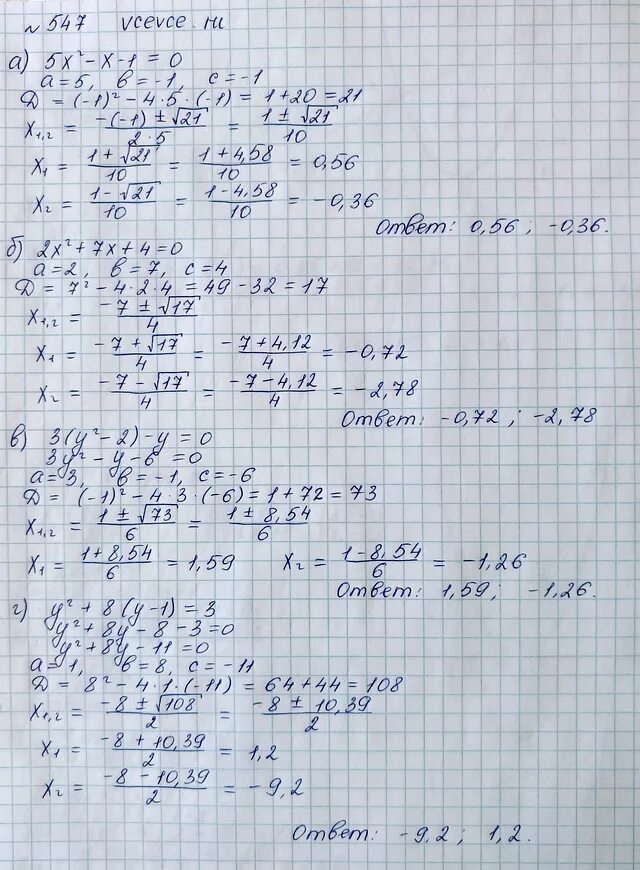 № 547 vcevce.ru
а) 5x² - x - 1 = 0
a = 5, в = -1, c = -1
D = (-1)² - 4·5·(-1) = 1 + 20 = 21
x₁,₂ = (-(-1) ± √21)/(2·5) = (1 ± √21)/10
x₁ = (1 + √21)/10 = (1 + 4,58)/10 = 0,56
x₂ = (1 - √21)/10 = (1 - 4,58)/10 = -0,36
Ответ: 0,56 ; -0,36.
б) 2x² + 7x + 4 = 0
a = 2, в = 7, c = 4
D = 7² - 4·2·4 = 49 - 32 = 17
x₁,₂ = (-7 ± √17)/4
x₁ = (-7 + √17)/4 = (-7 + 4,12)/4 = -0,72
x₂ = (-7 - √17)/4 = (-7 - 4,12)/4 = -2,78
Ответ: -0,72 ; -2,78
в) 3(y² - 2) - y = 0
3y² - y - 6 = 0
a = 3, в = -1, c = -6
D = (-1)² - 4·3·(-6) = 1 + 72 = 73
x₁,₂ = (1 ± √73)/6 = (1 ± 8,54)/6
x₁ = (1 + 8,54)/6 = 1,59 x₂ = (1 - 8,54)/6 = -1,26
Ответ: 1,59 ; -1,26.
г) y² + 8(y - 1) = 3
y² + 8y - 8 - 3 = 0
y² + 8y - 11 = 0
a = 1, в = 8, c = -11
D = 8² - 4·1·(-11) = 64 + 44 = 108
x₁,₂ = (-8 ± √108)/2 = (-8 ± 10,39)/2
x₁ = (-8 + 10,39)/2 = 1,2
x₂ = (-8 - 10,39)/2 = -9,2
Ответ: -9,2 ; 1,2.